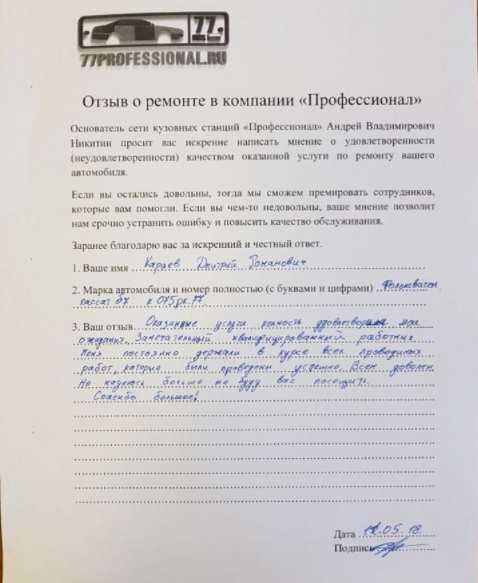 77
77PROFESSIONAL.RU
Отзыв о ремонте в компании «Профессионал»
Основатель сети кузовных станций «Профессионал» Андрей Владимирович
Никитин просит вас искренне написать мнение о удовлетворенности
(неудовлетворенности) качеством оказанной услуги по ремонту вашего
автомобиля.
Если вы остались довольны, тогда мы сможем премировать сотрудников,
которые вам помогли. Если вы чем-то недовольны, ваше мнение позволит
нам срочно устранить ошибку и повысить качество обслуживания.
Заранее благодарю вас за искренний и честный ответ.
1. Ваше имя Дмитрий Романович
2. Марка автомобиля и номер полностью (с буквами и цифрами) Фольксваген
пассат
3. Ваш отзыв. Оказанные услуги полность удовлетворили мои
ожидания. квалифицированный работник
Меня постоянно держали в курсе всех проводимых
работ, которые были проведены успешно. Всем доволен
Но надеюсь больше не буду вас посещать.
Спасибо большое!
Дата .05.18
Подпись